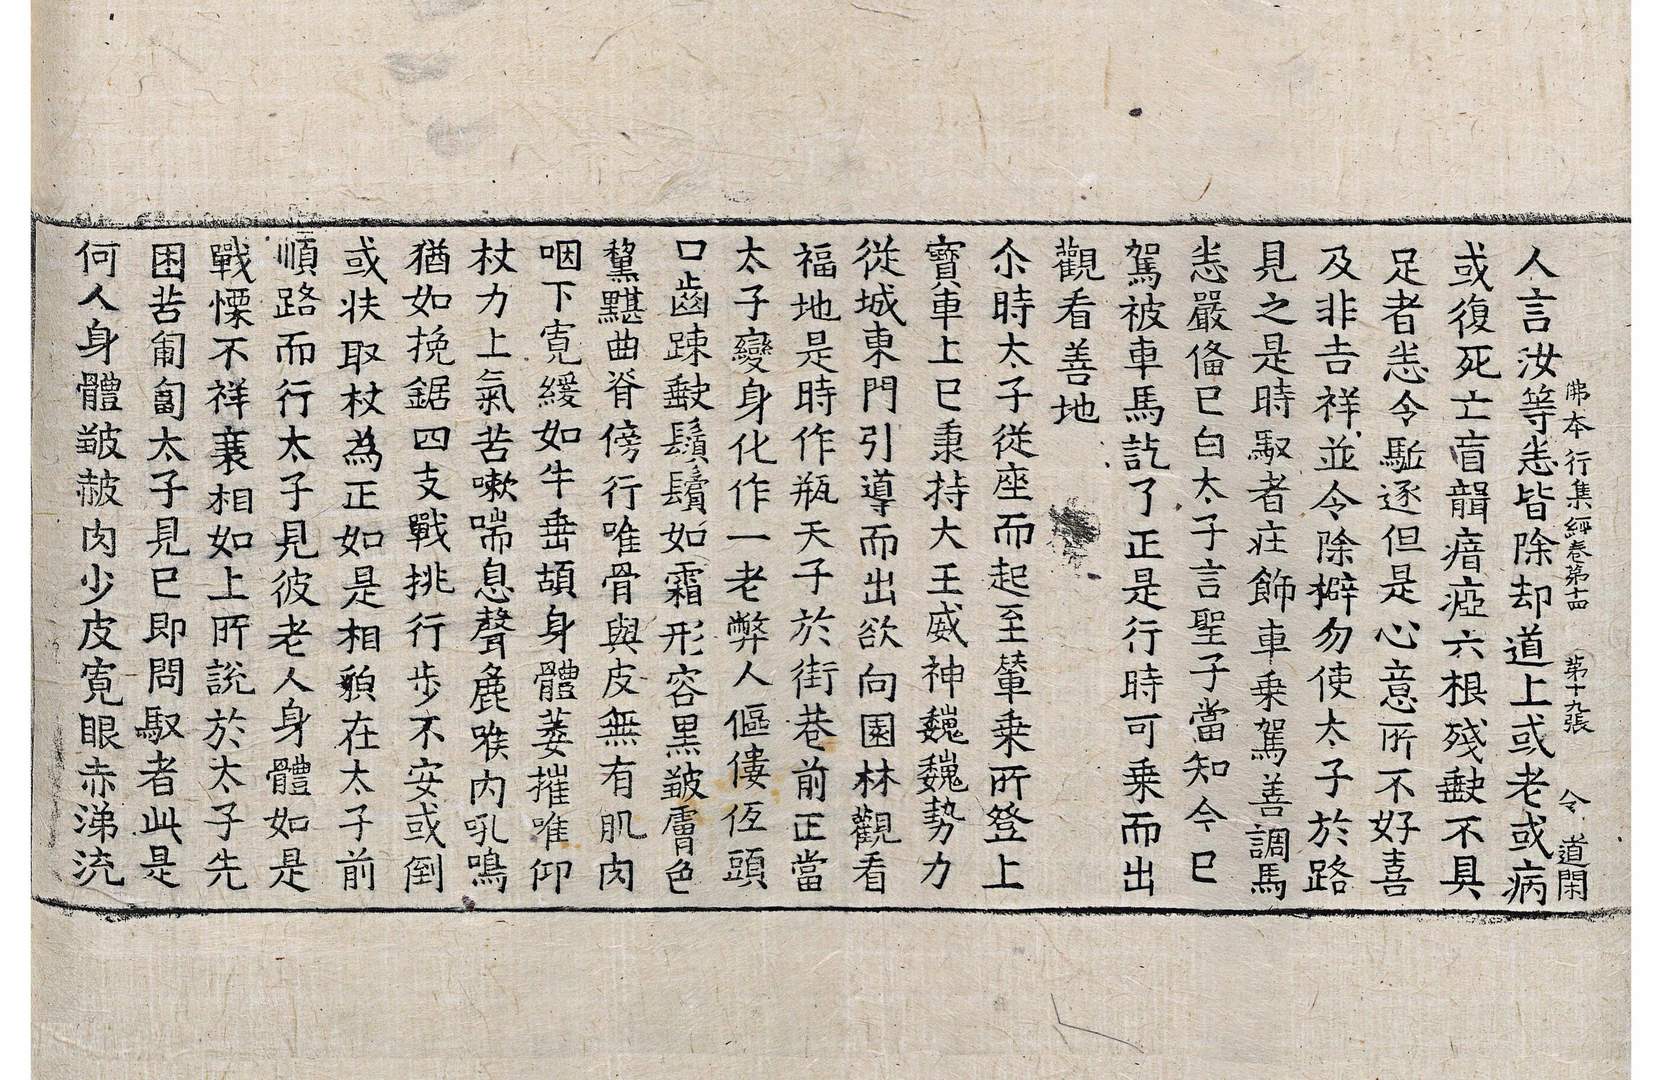 佛本行集經卷第十四　第十九張　令　道閑
人言汝等恙皆除却道上或老或病
或復死亡盲聾瘖瘂六根殘缺不具
足者恙令駈逐但是心意所不好喜
及非吉祥並令除擗勿使太子於路
見之是時馭者莊飾車乗駕善調馬
恙嚴俻已白太子言聖子當知今已
駕被車馬訖了正是行時可乗而出
觀看善地
尒時太子從座而起至輦乗所登上
寶車上已秉持大王威神巍巍勢力
從城東門引導而出欲向園林觀看
福地是時作瓶天子於街巷前正當
太子變身化作一老弊人傴僂仾頭
口齒踈缺鬚鬢如霜形容黒皺膚色
黧黮曲脊傍行唯骨與皮無有肌肉
咽下寛緩如牛垂頡身體萎摧唯仰
杖力上氣苦嗽喘息聲麁喉内吼鳴
猶如挽鋸四支戰挑行步不安或倒
或扶取杖為正如是相貌在太子前
順路而行太子見彼老人身體如是
戰慄不祥衰相如上所說於太子先
困苦匍匐太子見已即問馭者此是
何人身體皺赧肉少皮寛眼赤涕流